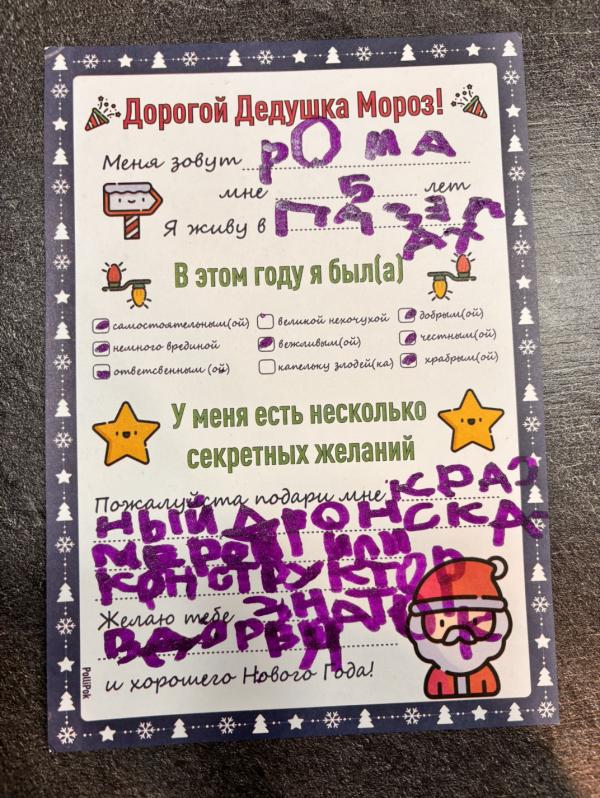 Дорогой Дедушка Мороз!
Меня зовут РОМА
мне 6 лет
Я живу в
В этом году я был(а)
самостоятельным(ой) великой нехочухой добрым(ой)
немного врединой вежливым(ой) честным(ой)
ответсвенным (ой) капельку злодей(ка) храбрым(ой)
У меня есть несколько
секретных желаний
Пожалуйста подари мне КРАЗ
НЫЙ ДРОН СКА
МЕРОЙ ИЛИ
КОНСТРУКТОР
Желаю тебе
и хорошего Нового Года!
PolliPok